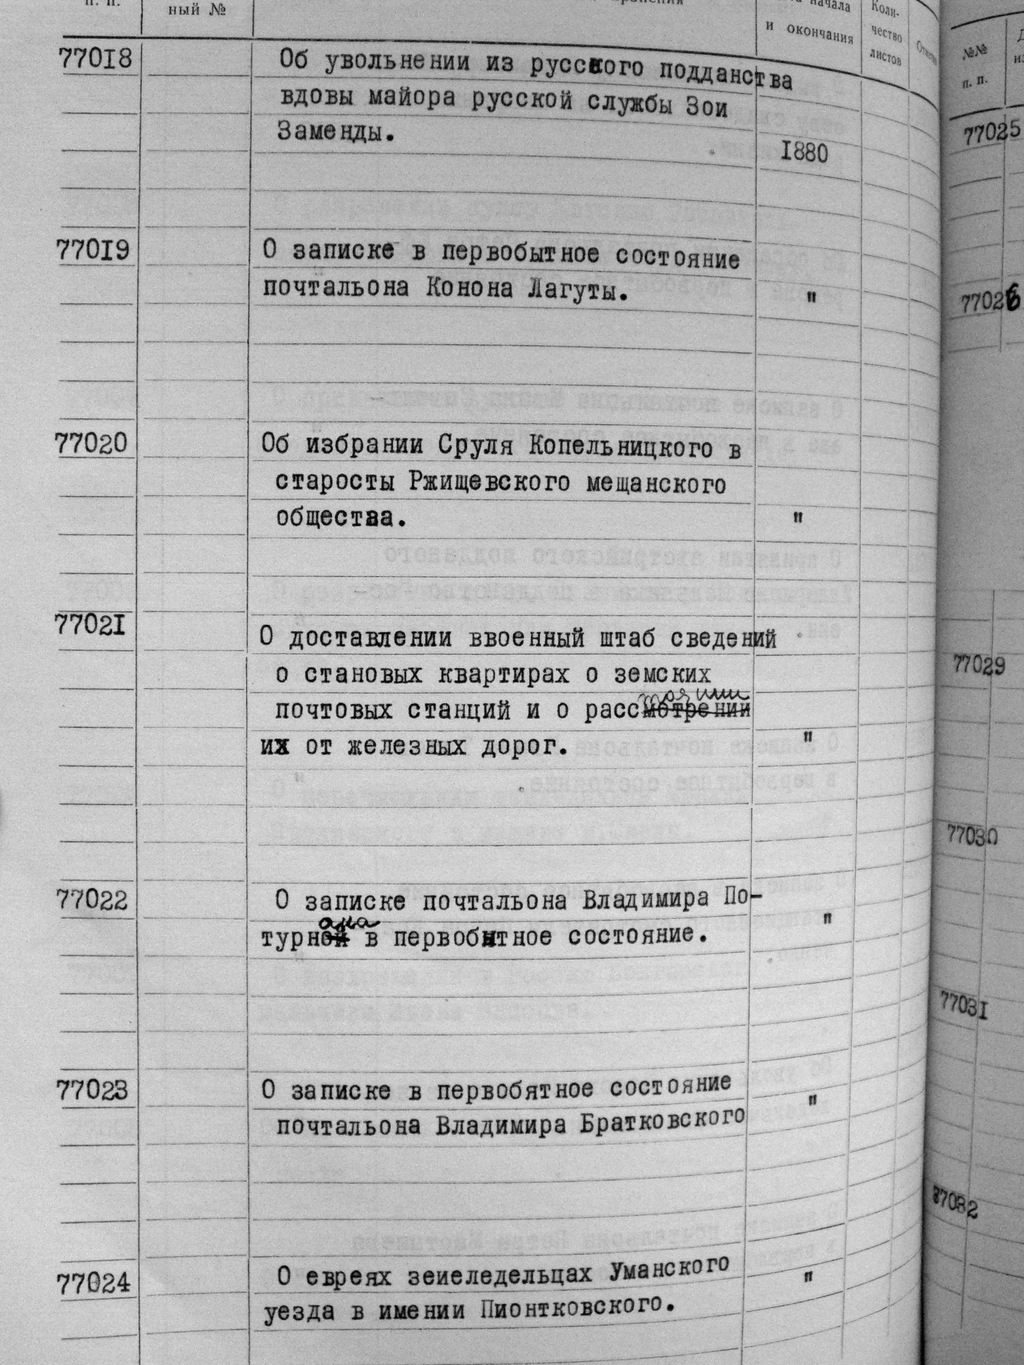 п. п.
ный №
начала
и окончания
Коли-
чество
листов
77018
Об увольнении из русского подданства
вдовы майора русской службы Зои
Заменды.
1880
77019
О записке в первобытное состояние
почтальона Конона Лагуты.
"
77020
Об избрании Сруля Копельницкого в
старосты Ржищевского мещанского
общества.
"
77021
О доставлении ввоенный штаб сведений
о становых квартирах о земских
почтовых станций и о рассмотрении
их от железных дорог.
"
77022
О записке почтальона Владимира По-
турной в первобытное состояние.
"
77023
О записке в первобятное состояние
почтальона Владимира Братковского
"
77024
О евреях земеледельцах Уманского
уезда в имении Пионтковского.
"
№№
п. п.
77025
77026
77029
77030
77031
77032